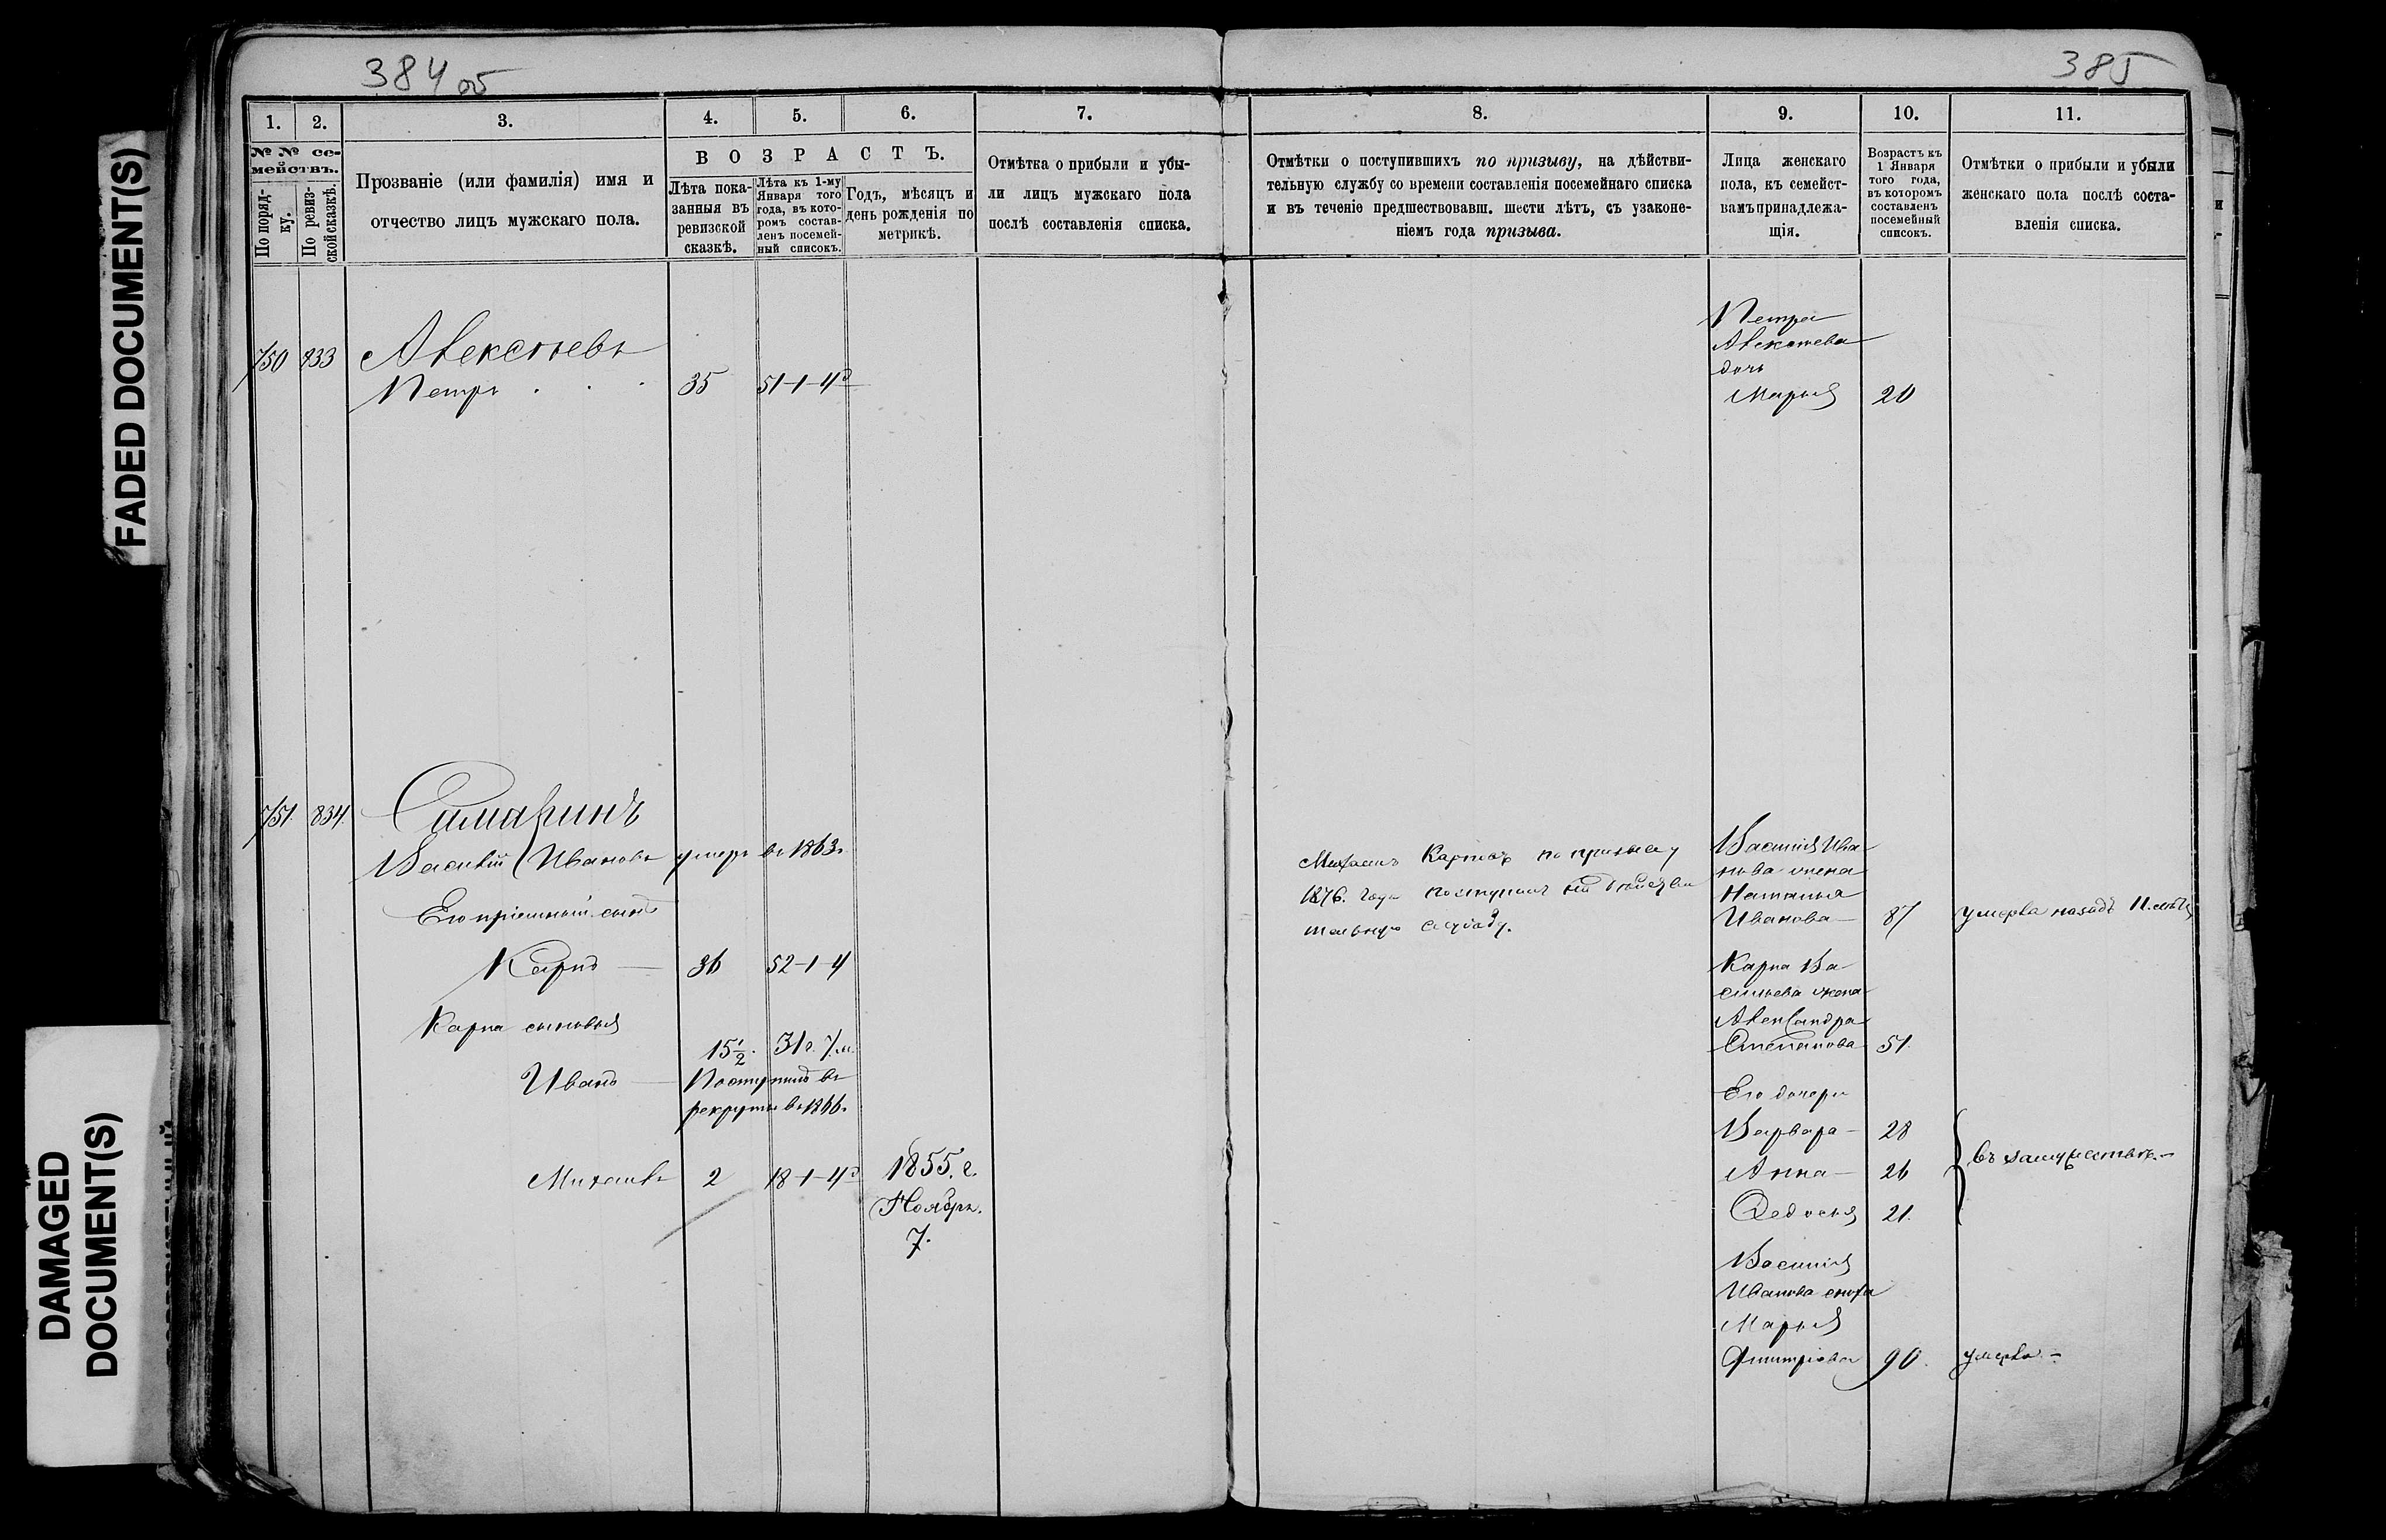 384 об
385
1.
2.
3.
4.
5.
6.
7.
8.
9.
10.
11.
№ № се-
мействъ.
По поряд-
ку.
По ревиз-
ской сказкѣ.
Прозваніе (или фамилія) имя и
отчество лицъ мужскаго пола.
ВОЗРАСТЪ.
Лѣта пока-
занныя въ
ревизской
сказкѣ.
Лѣта къ 1-му
Января того
года, въ кото-
ромъ состав-
ленъ посемей-
ный списокъ.
Годъ, мѣсяцъ и
день рожденія по
метрикѣ.
Отмѣтка о прибыли и убы-
ли лицъ мужскаго пола
послѣ составленія списка.
Отмѣтки о поступившихъ по призыву, на дѣйстви-
тельную службу со времени составленія посемейнаго списка
и въ теченіе предшествовавш. шести лѣтъ, съ узаконе-
ніемъ года призыва.
Лица женскаго
пола, къ семейст-
вамъ принадлежа-
щія.
Возрастъ къ
1 Января
того года,
въ которомъ
составленъ
посемейный
списокъ.
Отмѣтки о прибыли и убыли
женскаго пола послѣ соста-
вленія списка.
750 833 Алексѣевъ
Петръ 35 51-1-4
Петра
Алексѣева
дочь
Марья 20
751. 834. Самаринъ
Василій Ивановъ умеръ въ 1863.
Его пріемный сынъ
Карпъ 36 52-1-4
Карпа сыновья
15½. 31 г. 7 м.
Иванъ Поступилъ въ
рекруты въ 1866.
Михаилъ 2 18-1-4 1855. г.
Ноября.
7.
Михаилъ Карповъ по призыву
1876. года поступилъ на дѣйстви
тельную службу.
Василія Ива
нова жена
Наталья
Иванова 87 умерла назадъ 11. лѣтъ
Карпа Ва
сильева жена
Александра
Степанова 51.
Его дочери
Варвара 28
Анна 26 въ замужествѣ.
Федосья 21.
Василія
Иванова сноха
Марья
Дмитріева 90. умерла.
FADED DOCUMENT(S)
DAMAGED
DOCUMENT(S)